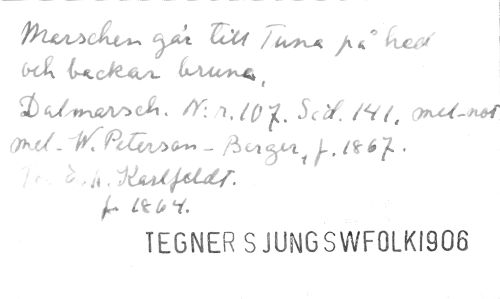 Marschen går till Tuna på hed
och backar bruna,
Dalmarsch. N:r. 107. Sid. 141. mel-not
mel. W. Peterson-Berger, f. 1867.
E. A. Karlfeldt.
f. 1864.
TEGNER SJUNGSWFOLK1906